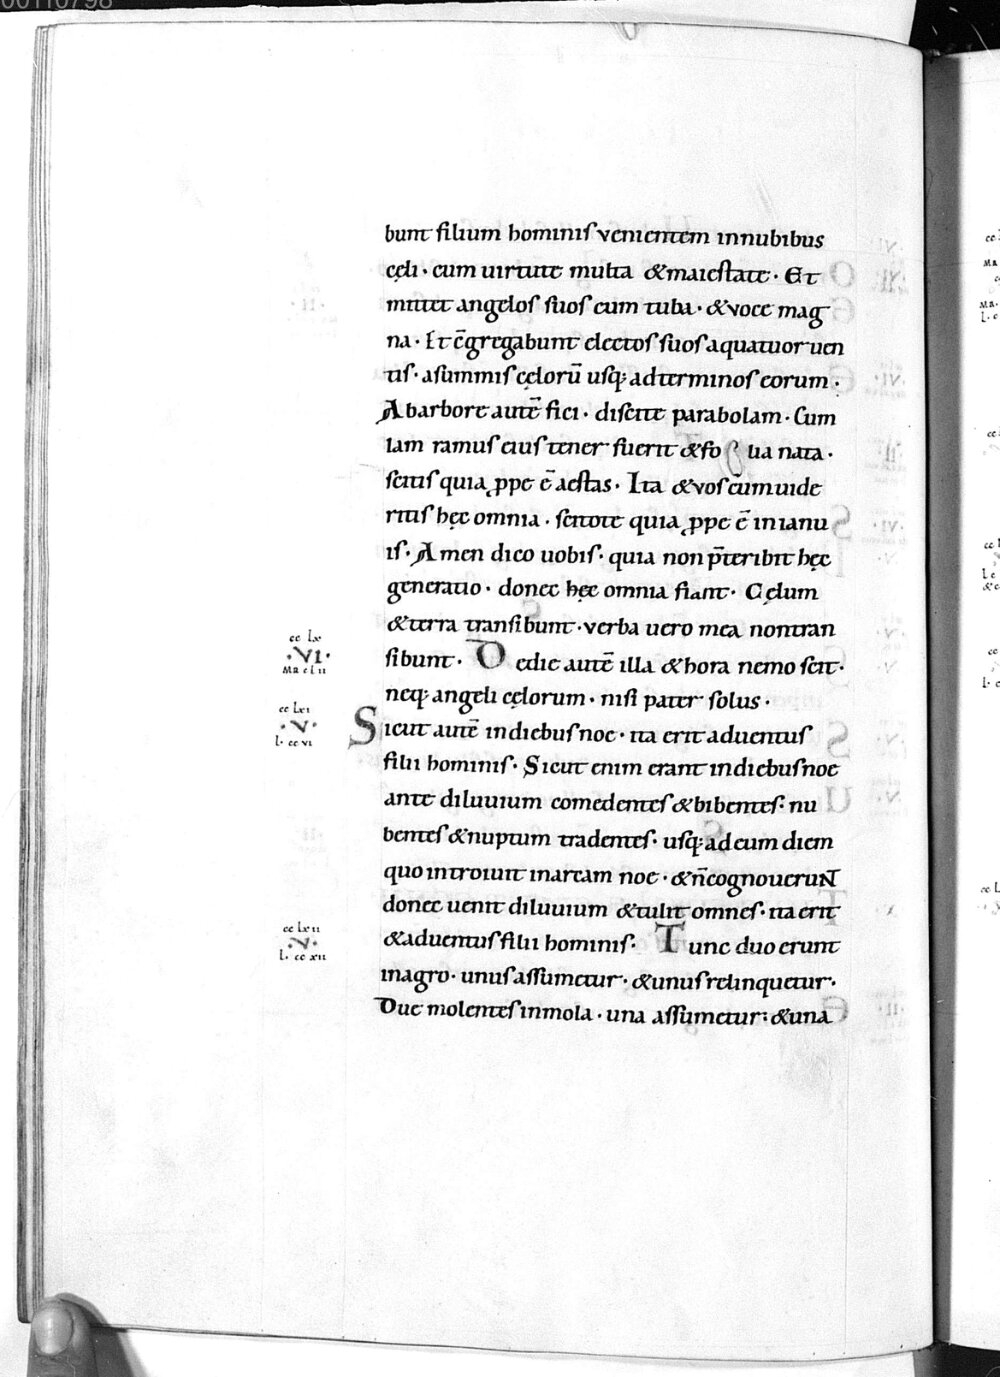 00110798
bunt filium hominis venientem innubibus
cęli · cum uirtute multa &maiestate · Et
mittet angelos suos cum tuba · &voce mag
na · Et c̄gregabunt electos suos aquatuor uen
tis · asummis cęlorū usq; adterminos eorum ·
Abarbore autē fici · discite parabolam · Cum
iam ramus eius tener fuerit &fo lia nata ·
scitis quia ꝓpe ē aestas · Ita &vos cum uide
ritis hęc omnia · scitote quia ꝓpe ē inianu
is · Amen dico uobis · quia non p̄teribit hęc
generatio · donec hęc omnia fiant · Cęlum
&terra transibunt · verba uero mea nontran
sibunt · Dedie autē illa &hora nemo scit ·
neq; angeli cęlorum · nisi pater solus ·
Sicut autē indiebus noe · ita erit aduentus
filii hominis · Sicut enim erant indiebus noe
ante diluuium comedentes &bibentes · nu
bentes &nuptum tradentes · usq; ad eum diem
quo introiuit inarcam noe · &n̄cognoueruNT
donec uenit diluuium &tulit omnes · ita erit
&aduentus filii hominis · Tunc duo erunt
inagro · unus assumetur · &unus relinquetur ·
Due molentes inmola · una assumetur : &una
cc lx
· VI ·
MR cl ii
cc lxi
· V ·
l · cc vi
cc lx ii
· V ·
l · cc xii